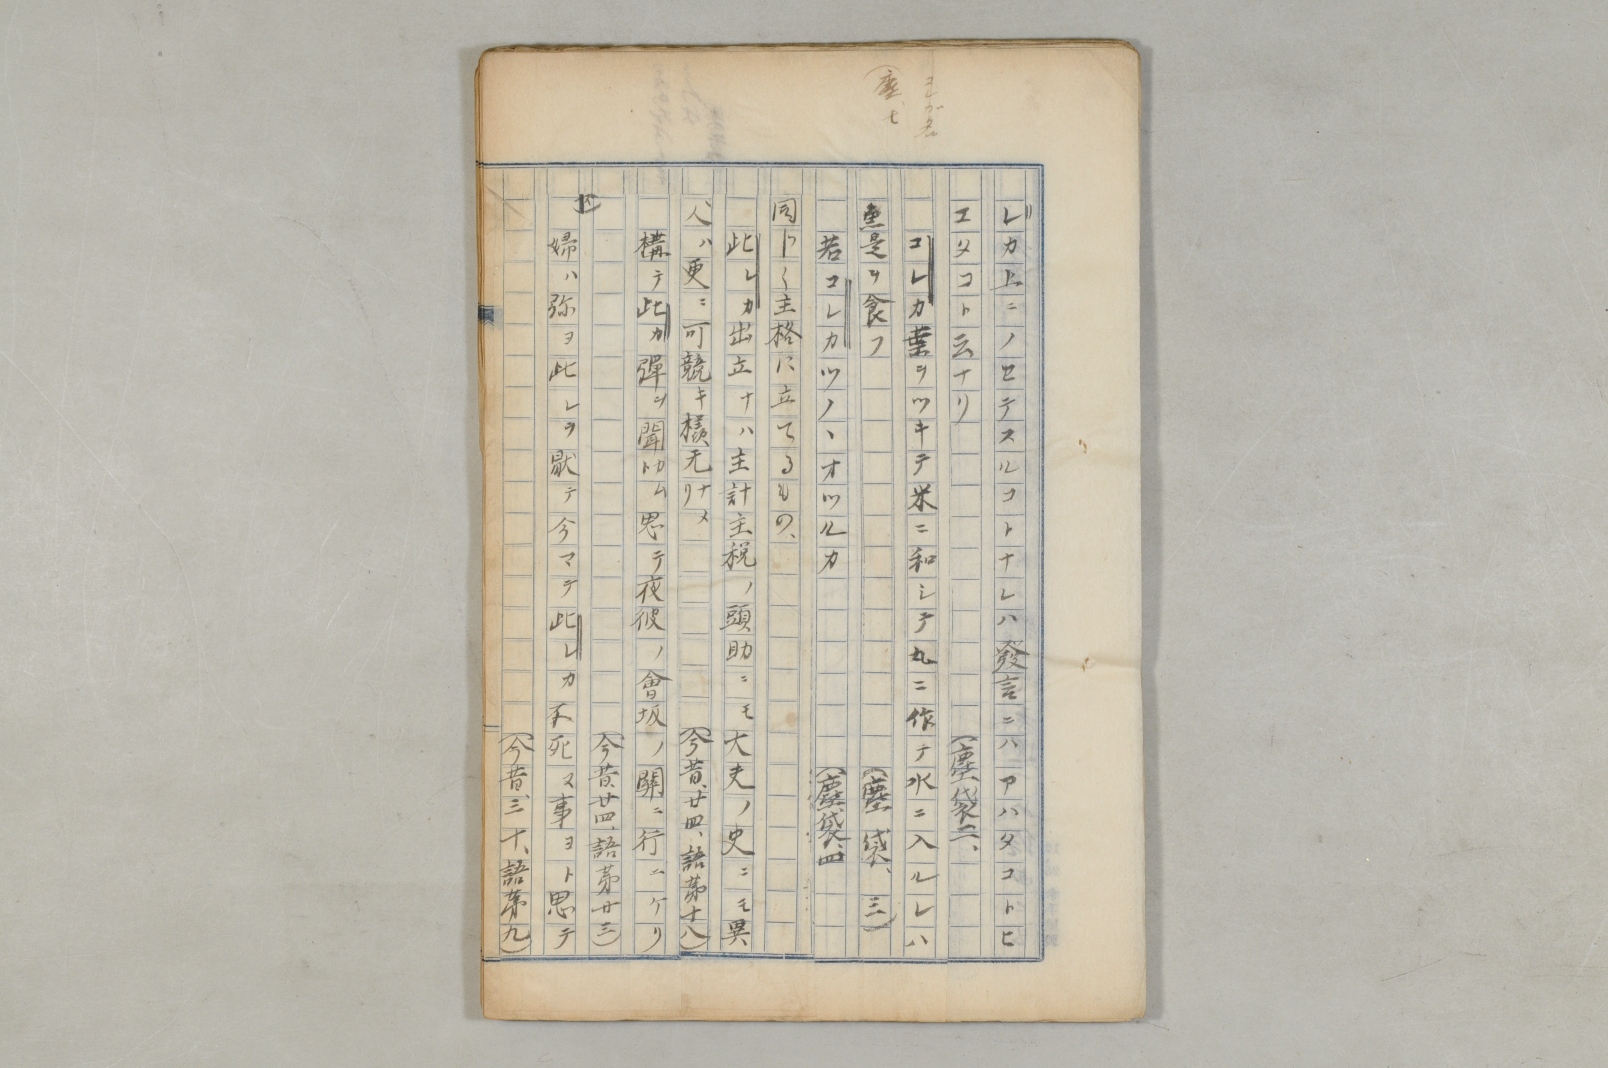 塵、七
レカ上ニノセテスルコトナレハ發言ニハアハタコトヒ
エタコト云ナリ（塵袋二、
コレカ葉ヲツキテ米ニ和シテ丸ニ作テ水ニ入ルレハ
魚是ヲ食フ（塵袋、三）
若コレカツノヽオツルカ（塵袋、四
同じく主格に立てるもの、
此レカ出立ナハ主計主税ノ頭助ニモ大夫ノ史ニモ異
人ハ更ニ可競キ樣无リナメ（今昔、廿四、語第十八）
構テ此カ彈ヲ聞カム思テ夜彼ノ會坂ノ關ニ行ニケリ
（今昔、廿四、語第廿三）
婦ハ弥ヨ此レヲ厭テ今マテ此レカ不死ヌ事ヨト思テ
（今昔、三十、語第九）